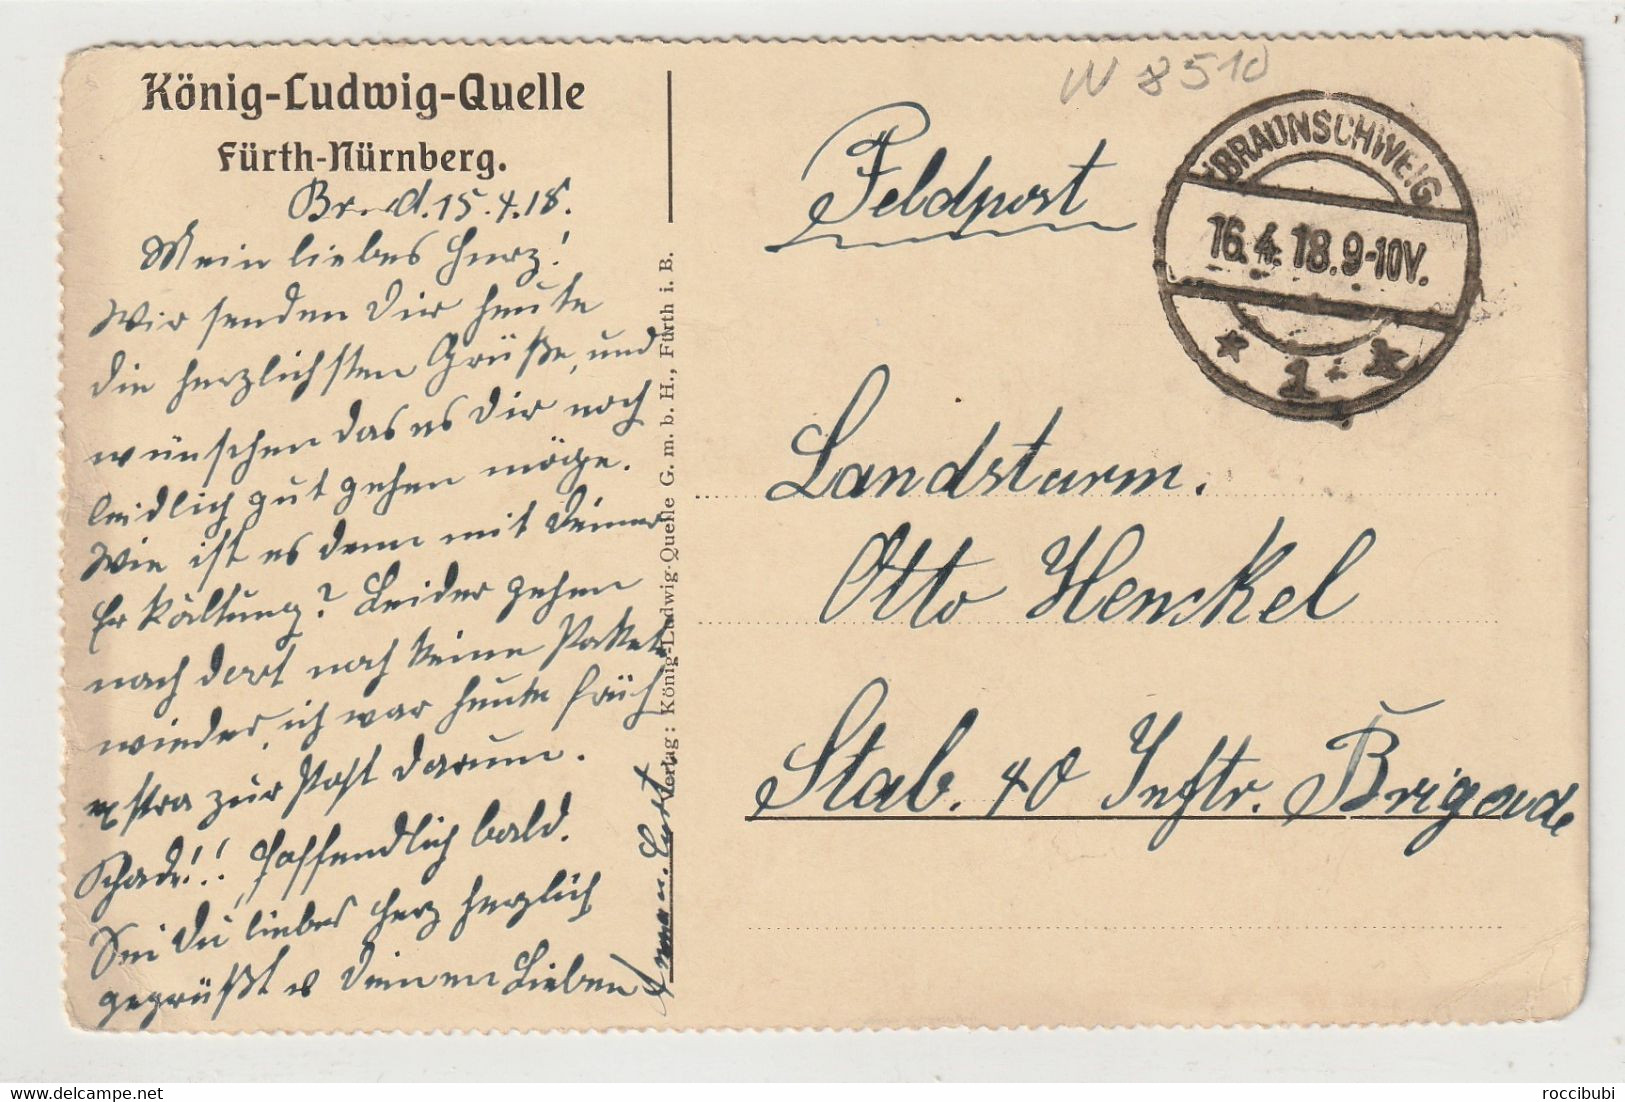 König-Ludwig-Quelle
Fürth-Nürnberg.
15.4.18.
Mein liebes Herz!
Wir senden Dir heute
die herzlichsten Grüße, und
wünschen das es Dir noch
leidlich gut gehen möge.
Wie ist es denn mit Deiner
Erkältung? Leider gehen
nach dort noch keine Pakete
wieder, ich war heute früh
extra zur Post darum.
Schade!! Hoffendlich bald.
Sei Du liebes Herz herzlich
gegrüßt v Deinen Lieben
u.
Verlag: König-Ludwig-Quelle G. m. b. H., Fürth i. B.
W 8510
Feldpost
BRAUNSCHWEIG
16.4.18.9-10V.
* 1 *
Landsturm.
Otto Henckel
Stab. 40 Inftr. Brigade
roccibubi